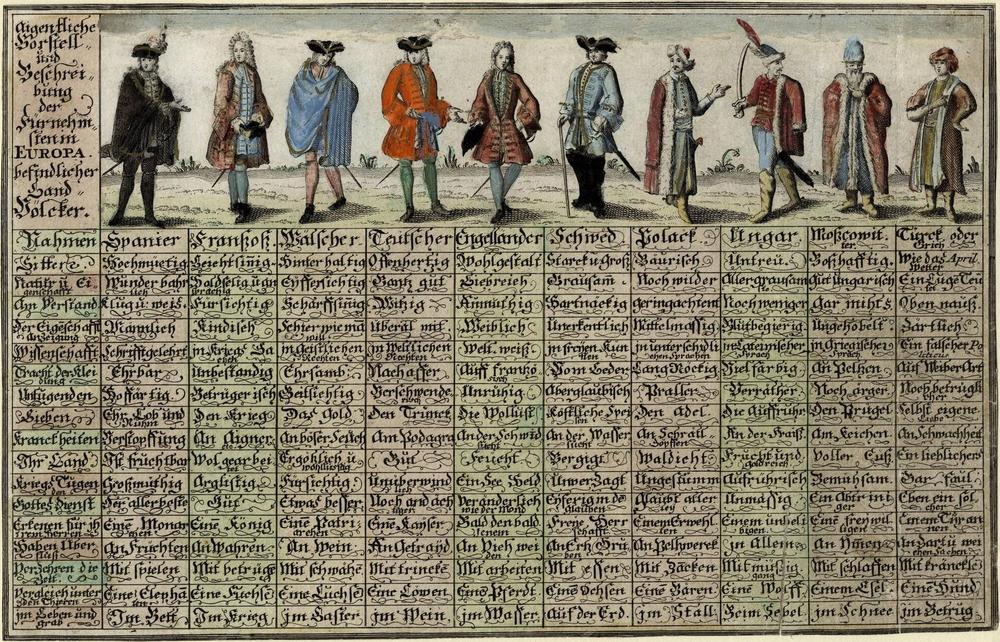 Aigentliche
Vorstell-
und
Beschrei-
bung
der
Fürnehm-
sten in
EUROPA.
befindlicher
Land-
Völcker.
Nahmen Spanier Frantzoß. Wälscher. Teutscher Engelländer Schwed Polack. Ungar Moßcowitter. Türck oder Griech
Sitten Hochmüetig Leichtsinig Hinterhaltig Offenhertzig Wohlgestalt Starck u: Groß Bäurisch Untreu. Boßhafftig. Wie das April Wetter
Natur u: Eigenschafft Wunderbahr Holdselig und gesprächig Eyffersichtig Gantz gut Liebreich Grausam. Noch wilder Aller grausambst Gut ungarisch Ein Lüge Teufel
An Verstand Klug u: weis. Fürsichtig Schärffsinig Witzig Anmüthig Hartnäckig geringachtend Noch weniger Gar nichts Oben nauß.
Der Eigeschafft anzeigung Mannlich Kindisch Wie man will überal mit Weiblich Unerkentlich Mittelmässig Blutbegierig Ungehöbelt Zärtlich
Wissenschafft Schrifftgelehrt in Kriegs Sachen in geistlichen Rechten in Weltlichen Rechten Welt weiß in freyen Kunsten in unterschidlichen Sprachen in Lateinischer Sprach in Griegischer Sprach Ein falscher Politicus
Tracht der Kleidung Ehrbar Unbeständig Ehrsamb. Nach affer Auff französisch Von Leder Lang Röckig Viel färbig An Peltzen Auf Weiber Art
Untugenden Hoffärtig Betrügerisch Geilsichtig Verschwenderisch Unrühig Aberglaubisch Praller. Verräther Noch ärger Noch betrüglicher
Lieben Ehr, Lob und Ruhm Den Krieg Das Gold Den Trunck Die Wollust Köstliche Speisen Den Adel Die Auffruhr Den Prügel Selbst eigene Liebe
Kranckheiten Verstopffung An Aigner An böser Seüch Am Podagra An der Schwindsucht An der Wassersucht An der Fraiß Am Keichen An Schwachheit
Ihr Land. Ist fruchtbar Wol gearbeit Ergötzlich u: wohllüstig Gut Feucht Bergigt Waldicht Frucht und goldreich Voller Eiß Ein liebliches
Kriegs Tugenden Großmüthig Arglistig Fürsichtig Unüberwindlich Ein See Held Unverzagt Ungestümm Aufrührisch Bemühsam Gar faul
Gottesdienst Der aller beste Gut Etwas besser. Noch andächtiger Veränderlich wie der Mond Eyferig im glauben Glaubt allerley Unmässig Ein Abtrint Eben ein solcher
Erkenen für ihren Herren Eine Monarchen Eine König Eine Patriarchen Eine Kayser Bald den bald jenem Freye Herrschafft Einem Erwehlten Einem unbeliebigen Eine freywilligen Einem Tyrannen
Haben Überfluß An Früchten An Wahren An Wein An Getraid An Vieh weiden An Ertz Gruben An Peltzwerck in Allem An Immen An Zart u: weichen Sachen
Verzehren die Zeit. Mit spielen Mit betrügen Mit schwätzen Mit trincken Mit arbeiten Mit essen Mit Zäncken Mit müssig gang Mit schlaffen Mit kränckeln
Vergleich unter den Thieren Eine Elephanten Eine Füchsen Eine Lüchsen Eine Löwen Eine Pferdt. Eine Ochsen Eine Bären Eine Wolff. Einem Esel. Eine Hund
Im Leben und grab Im Bett Im Krieg Im Laster Im Wein. Im Wasser Auf der Erd. Im Stall Beim Sebel. Im Schnee Im Betrug.